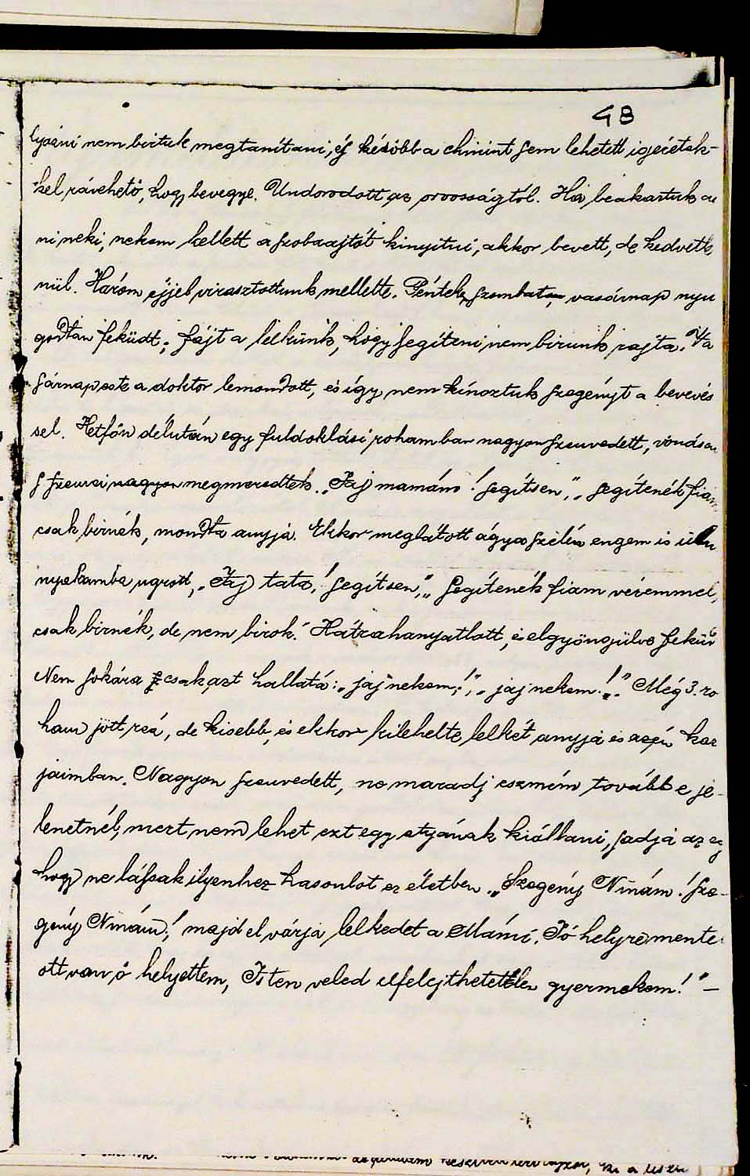 48
lyázni nem birtuk megtanitani, és később a chinint sem lehetett igéretek-
kel rávehető, hogy bevegye. Undorodott az orvosságtól. Ha beakartuk ad
ni neki, nekem kellett a szobaajtót kinyitni, akkor bevett, de kedvetle
nül. Három éjjel virasztottunk mellette. Péntek, szombat, vasárnap nyu
godtan feküdt; fájt a lelkünk, hogy segíteni nem birunk rajta. Va
sárnap este a doktor lemondott, és így nem kínoztuk szegényt a bevevés
sel. Hetfőn délután egy fuldoklási rohamban nagyon szenvedett, vonásai
s szemei nagyon megmeredtek. „Jaj mamám! segítsen," „segítenék fiam,
csak birnék, mondta anyja. Ekkor meglátott ágya szélén engem is ülni
nyakamba ugrott, „Jaj tata! segítsen," „segítenék fiam véremmel,
csak birnék, de nem birok." Hátrahanyatlott, és elgyöngülve feküdt
Nem sokára csak azt hallatá: „jaj nekem!," „jaj nekem!." Még 3. ro
ham jött reá, de kisebb, és ekkor kilehelte lelkét anyja és az én kar
jaimban. Nagyon szenvedett, ne maradj eszmém tovább e je-
lenetnél, mert nem lehet ezt egy atyának kiállani, s adja az ég
hogy ne lássak ilyenhez hasonlót ez életben. „Szegény Ninám! Sze-
gény Ninám! majd elvárja lelkedet a Mámi. Jó helyre mente
ott van ő helyettem, Isten veled elfelejthetetlen gyermekem!" —